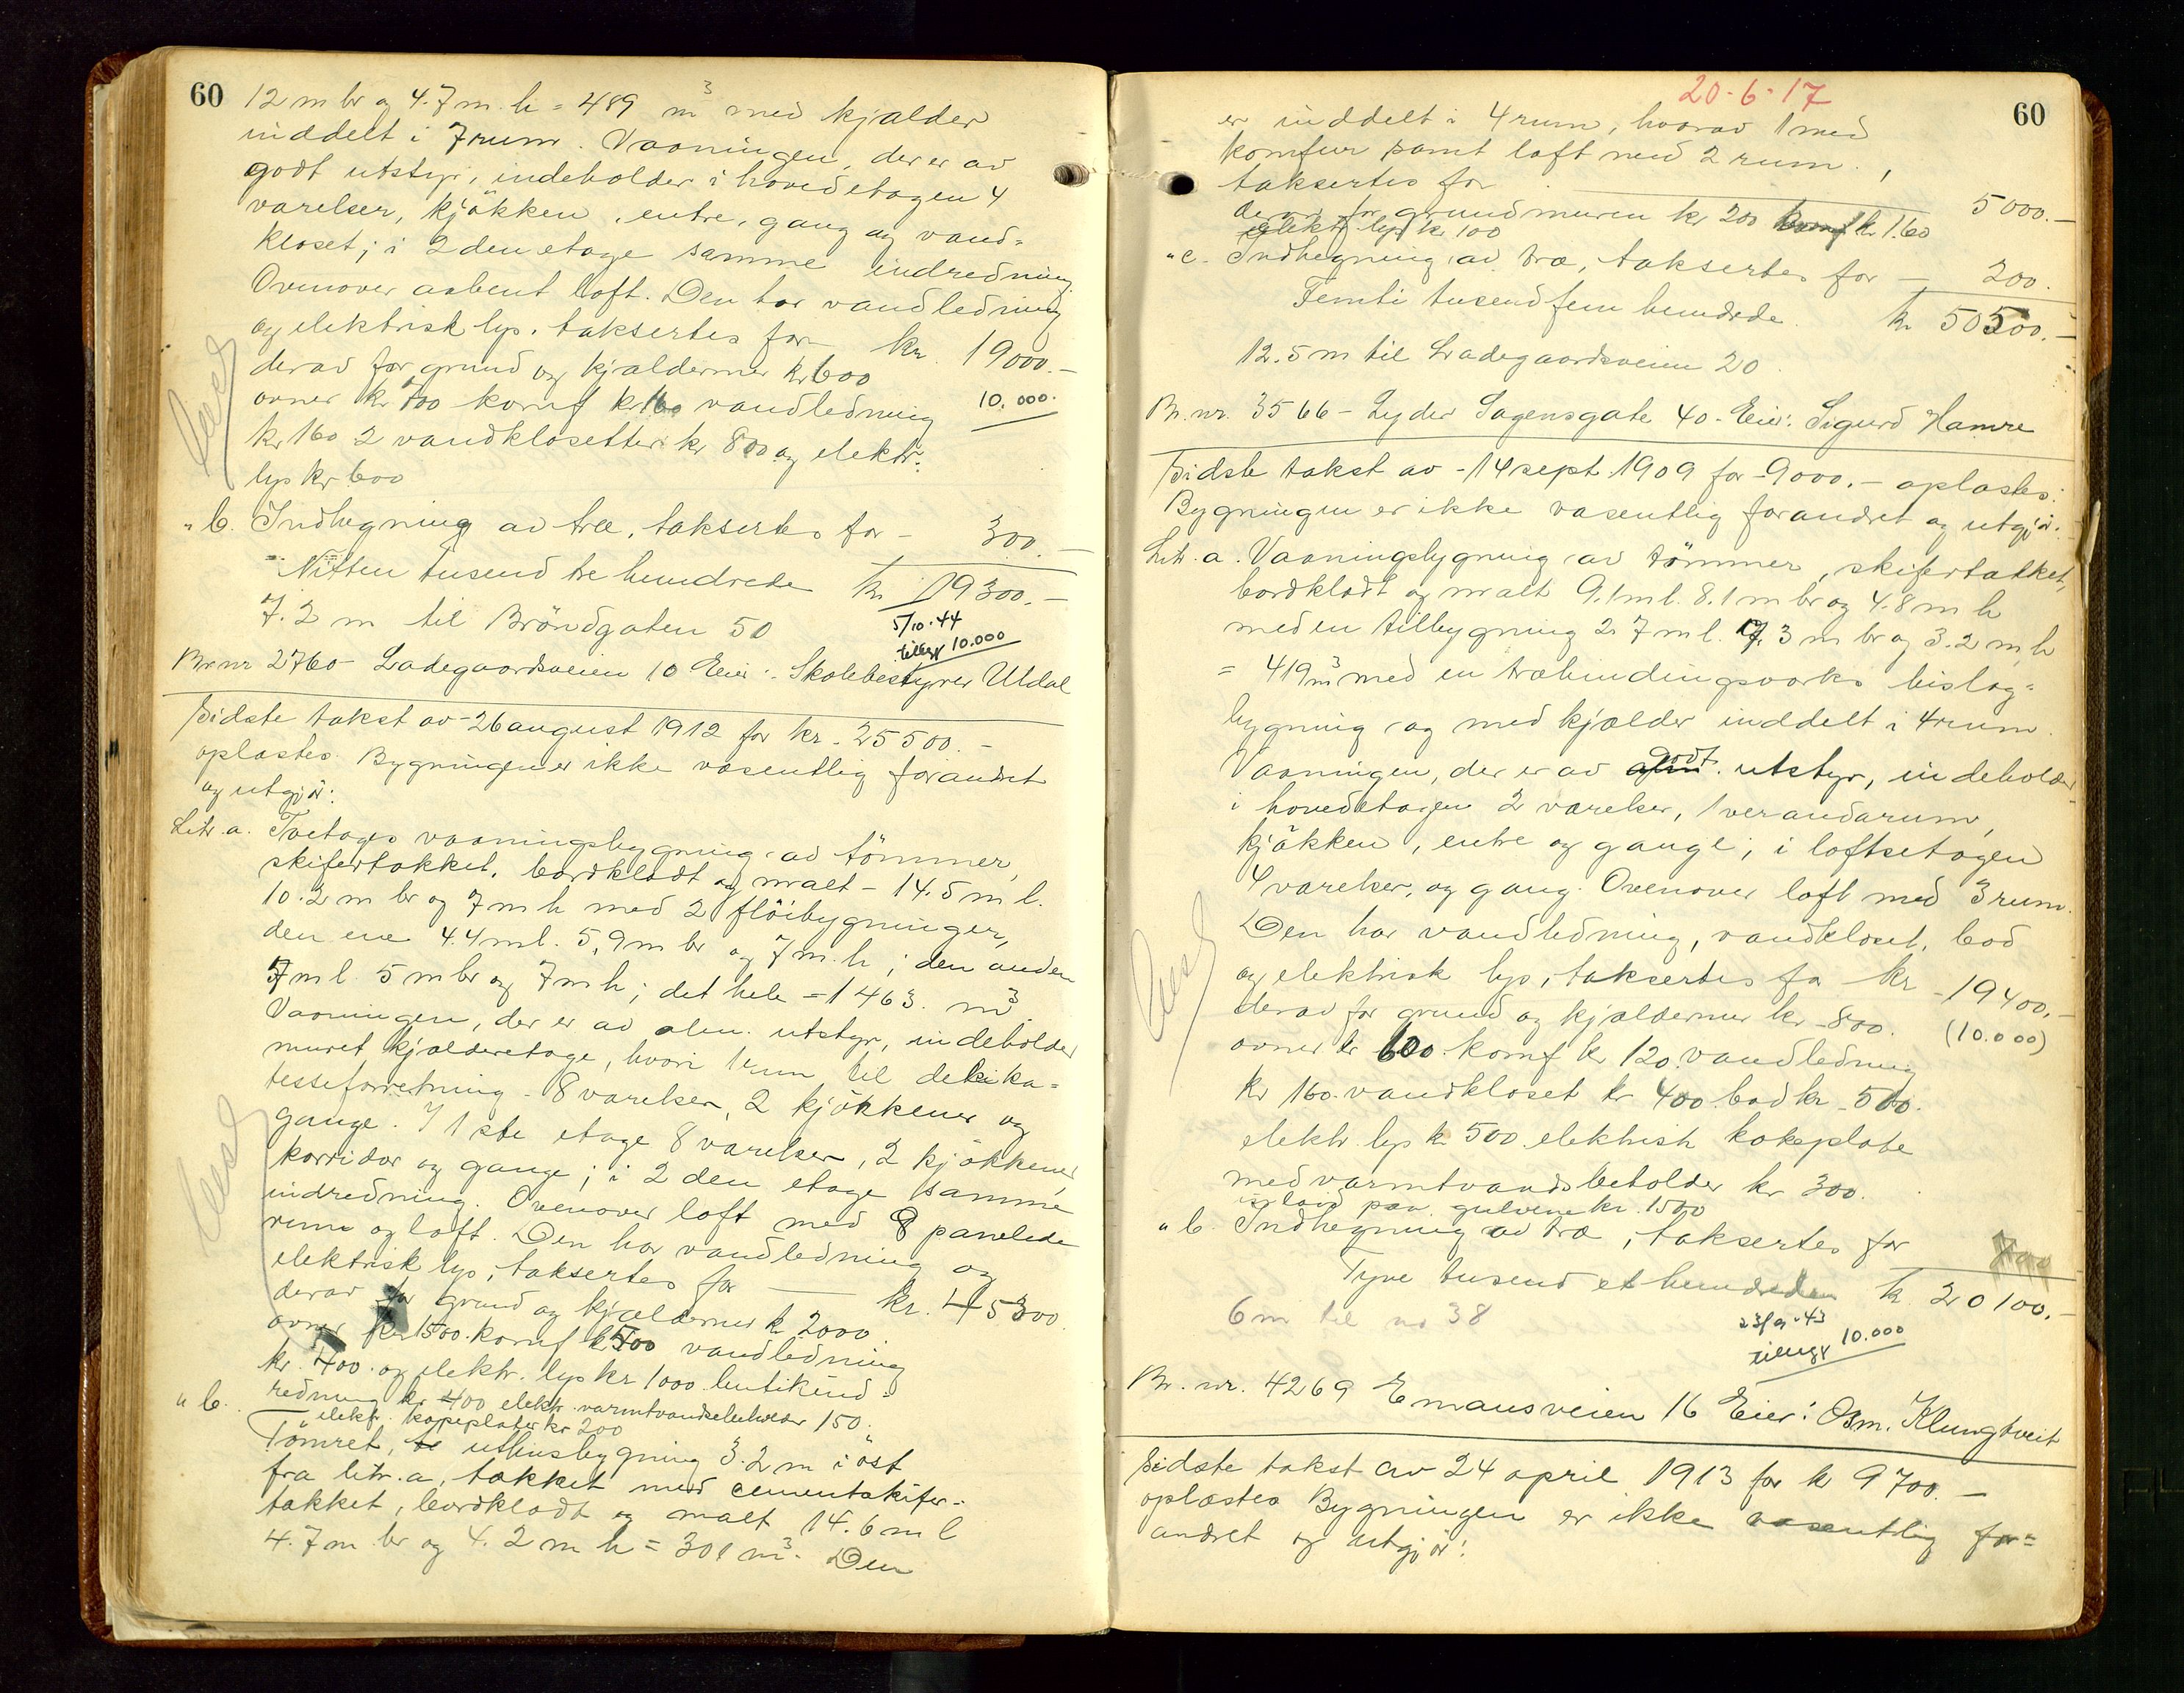 60
12 m br og 4.7 m. h = 489 m³ med kjælder
inddelt i 7 rum. Vaaningen, der er av
godt utstyr, indeholder i hovedetagen 4
værelser, kjøkken, entre, gang og vand-
kloset; i 2den etage samme indredning
Ovenover aabent loft. Den har vandledning
og elektrisk lys, taksertes for kr. 19000.-
derav for grund og kjældermur kr 600
ovner kr 700 komf kr 160 vandledning 10.000.
kr 160 2 vandklosetter kr 800 og elektr.
lys kr 600
" b. Indhegning av træ, taksertes for - 300.-
Nitten tusend tre hundrede kr 19300.-
7.2 m til Brøndgaten 50
5/10-44
tillegg 10.000
Br nr 2760 - Ladegaardsveien 10 Eier: Skolebestyrer Utdal
Sidste takst av 26 august 1912 for kr. 25500.-
oplæstes. Bygningen er ikke væsentlig forandret
og utgjør:
Litr. a. Toetages vaaningsbygning av tømmer,
skifertækket, bordklædt og malt - 14.5 m l.
10.2 m br og 7 m h med 2 fløibygninger,
den ene 4.4 m l. 5,9 m br og 7 m. h; den anden
7 m l 5 m br og 7 m h; det hele = 1463 m³
Vaaningen, der er av alm. utstyr, indeholder
muret kjælderetage, hvori 1 rum til delika-
tesseforretning - 8 værelser, 2 kjøkkener og
gange. I 1ste etage 8 værelser, 2 kjøkkener
korridor og gange; i 2den etage samme
indredning. Ovenover loft med 8 panelede
rum og loft. Den har vandledning og
elektrisk lys, taksertes for kr. 45300.
derav for grund og kjældermur kr 2000
ovner kr 1500. komf kr 500 vandledning
kr. 400. og elektr. lys kr 1000 butikind-
redning kr 400 elektr. varmtvandsbeholder 150.
elektr. kokeplater kr 200
" b. Tømret, uthusbygning 3.2 m i øst
fra litr. a, tækket med cementskifer-
tækket, bordklædt og malt 14.6 m l
4.7 m br og 4.2 m h = 301 m³. Den
20-6-17
60
er inddelt i 4 rum, hvorav 1 med
komfur samt loft med 2 rum.,
taksertes for 5000.-
derav for grundmuren kr 200 komf kr 160
elektr lys kr 100
" c. Indhegning av træ, taksertes for - 200.
Femti tusend fem hundrede kr 50500.-
12.5 m til Ladegaardsveien 20
Br. nr. 3566 - Lyder Sagensgate 40 - Eier: Sigurd Hamre
Sidste takst av - 14 sept. 1909 for - 9000.- oplæstes:
Bygningen er ikke væsentlig forandret og utgjør:
Litr. a. Vaaningsbygning av tømmer, skifertækket,
bordklædt og malt 9.1 m l. 8.1 m br og 4.8 m h
med en tilbygning 2.7 m l. 7.3 m br og 3.2 m h
= 419 m³ med en træbindingsverks bislag-
bygning og med kjælder inddelt i 4 rum
Vaaningen, der er av alm. godt utstyr, indeholder
i hovedetagen 2 værelser, 1 verandarum,
kjøkken, entre og gange; i loftsetagen
4 værelser, og gang. Ovenover loft med 3 rum.
Den har vandledning, vandkloset, bad
og elektrisk lys, taksertes for kr - 19400.-
derav for grund og kjældermur kr - 800. (10.000)
ovner kr 600. komf kr 120. vandledning
kr 160. vandkloset kr 400. bad kr 500.
elektr. lys kr 500 elektrisk kokeplate
med varmtvandsbeholder kr 300.
gulvene kr. 1500
" b. Indhegning av træ, taksertes for 700
Tyve tusend et hundrede kr 20100.-
6 m til no 38
23/9-43
tillegg 10.000
Br. nr. 4269 Emausveien 16 Eier: Osm. Klungtveit
Sidste takst av 24 april 1913 for kr 9700.-
oplæstes Bygningen er ikke væsentlig for-
andret og utgjør: